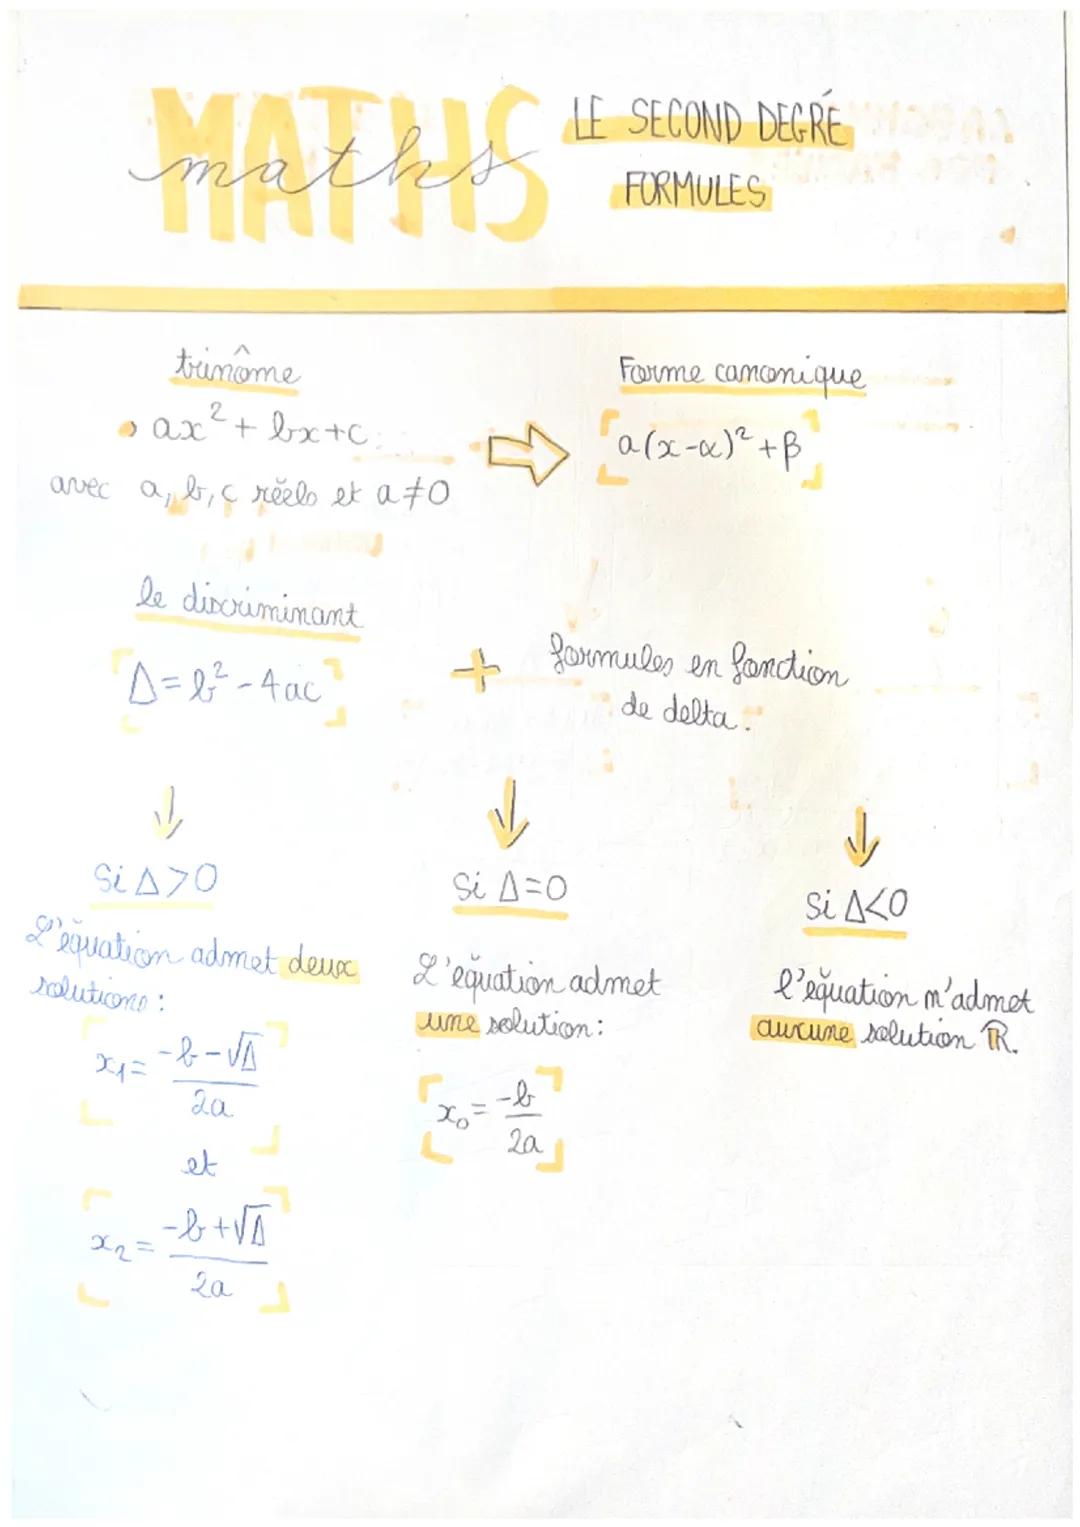 MATHS
maths
LE SECOND DEGRÉ
FORMULES
trinôme
ax² + bx+c
avec a, b, c réels et a≠0
Forme canonique
a(x-α)² + β
le discriminant
Δ = b² - 4ac
+
formules en fonction
de delta.
Si Δ>0
L'équation admet deux
solutions :
x₁ = -b-√Δ / 2a
et
x₂ = -b+√Δ / 2a
Si Δ=0
L'équation admet
une solution :
x₀ = -b / 2a
Si Δ<0
l'équation n'admet
aucune solution ℝ.